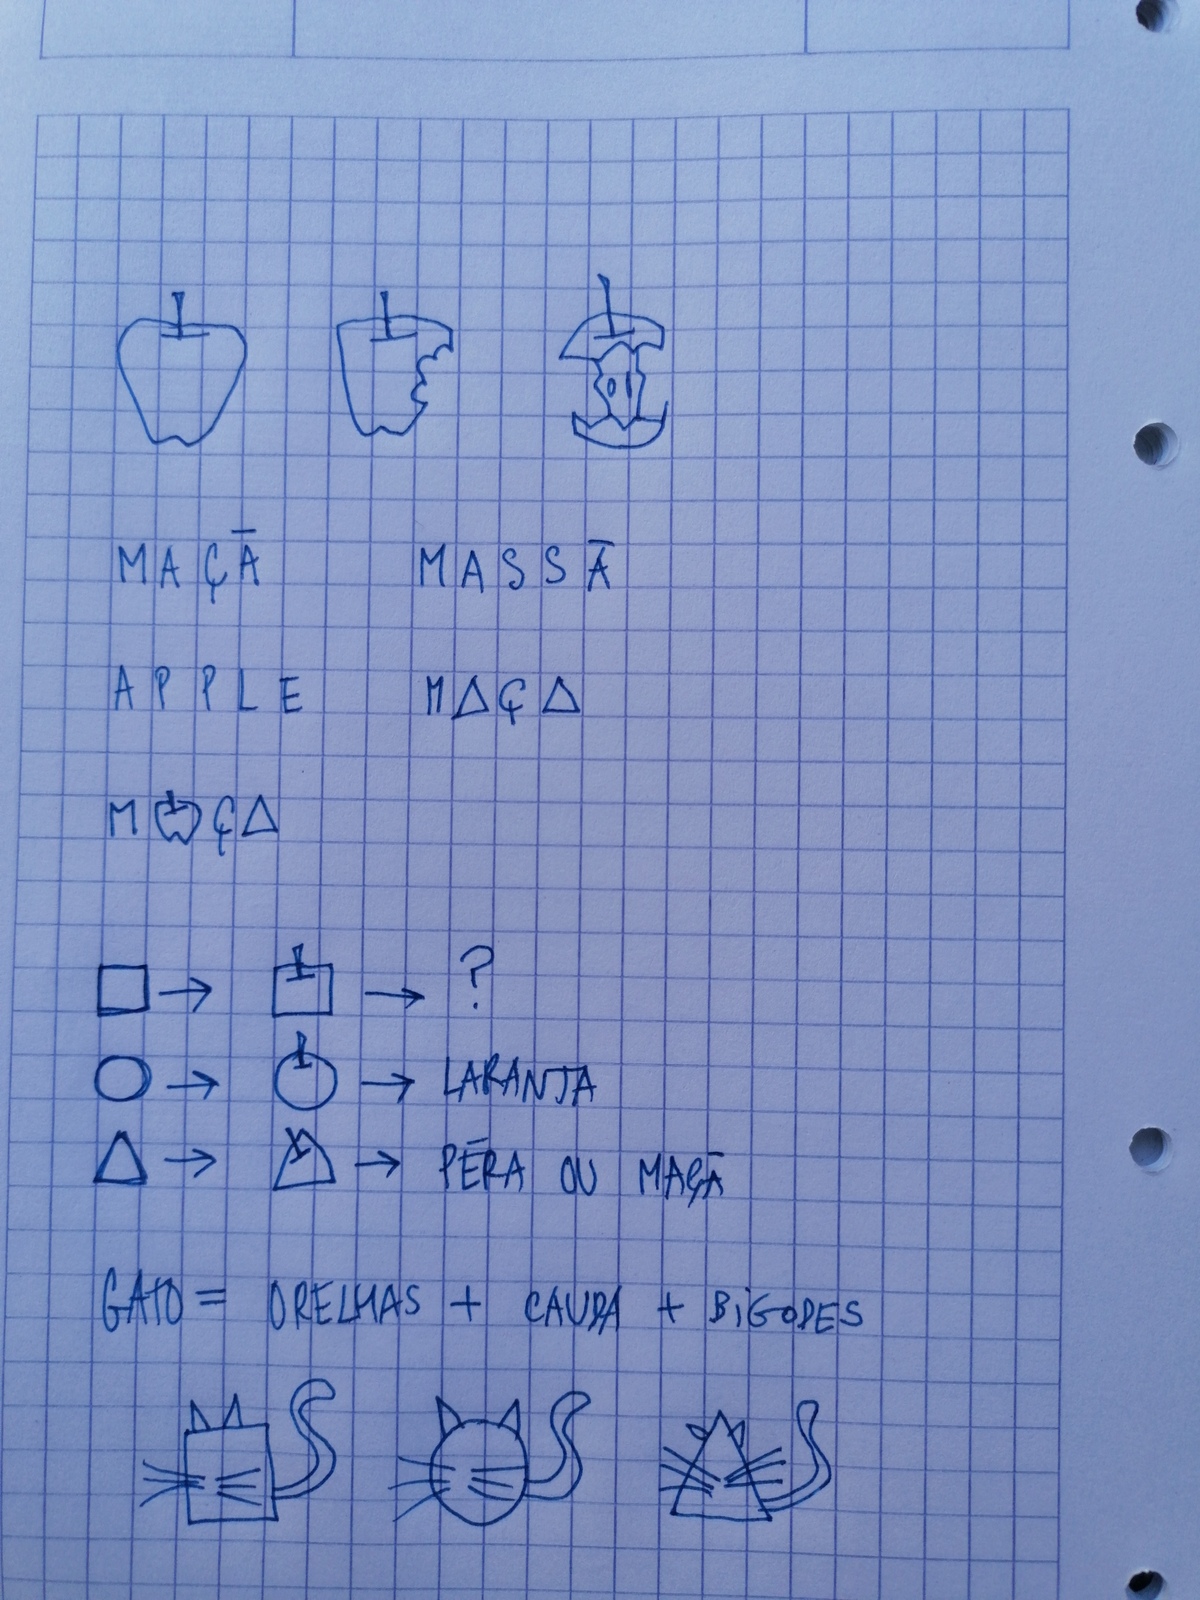 MAÇÃ MASSÃ
APPLE MΔÇΔ
M ÇΔ
→ → ?
→ → LARANJA
→ → PÊRA OU MAÇÃ
GATO = ORELHAS + CAUDA + BIGODES